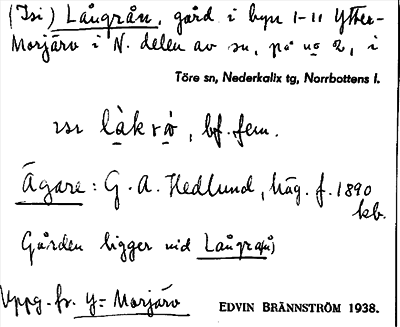 (Isi) Långrån, gård i byn 1-11 Ytter-
Morjärv i N. delen av sn, på no 2, i
Töre sn, Nederkalix tg, Norrbottens l.
ısı làkrå̀, bf. fem.
Ägare: G. A. Hedlund, häg. f. 1890
kb.
Gården ligger vid Långra(n)
Uppg.-fr. Y= Morjärv
EDVIN BRÄNNSTRÖM 1938.